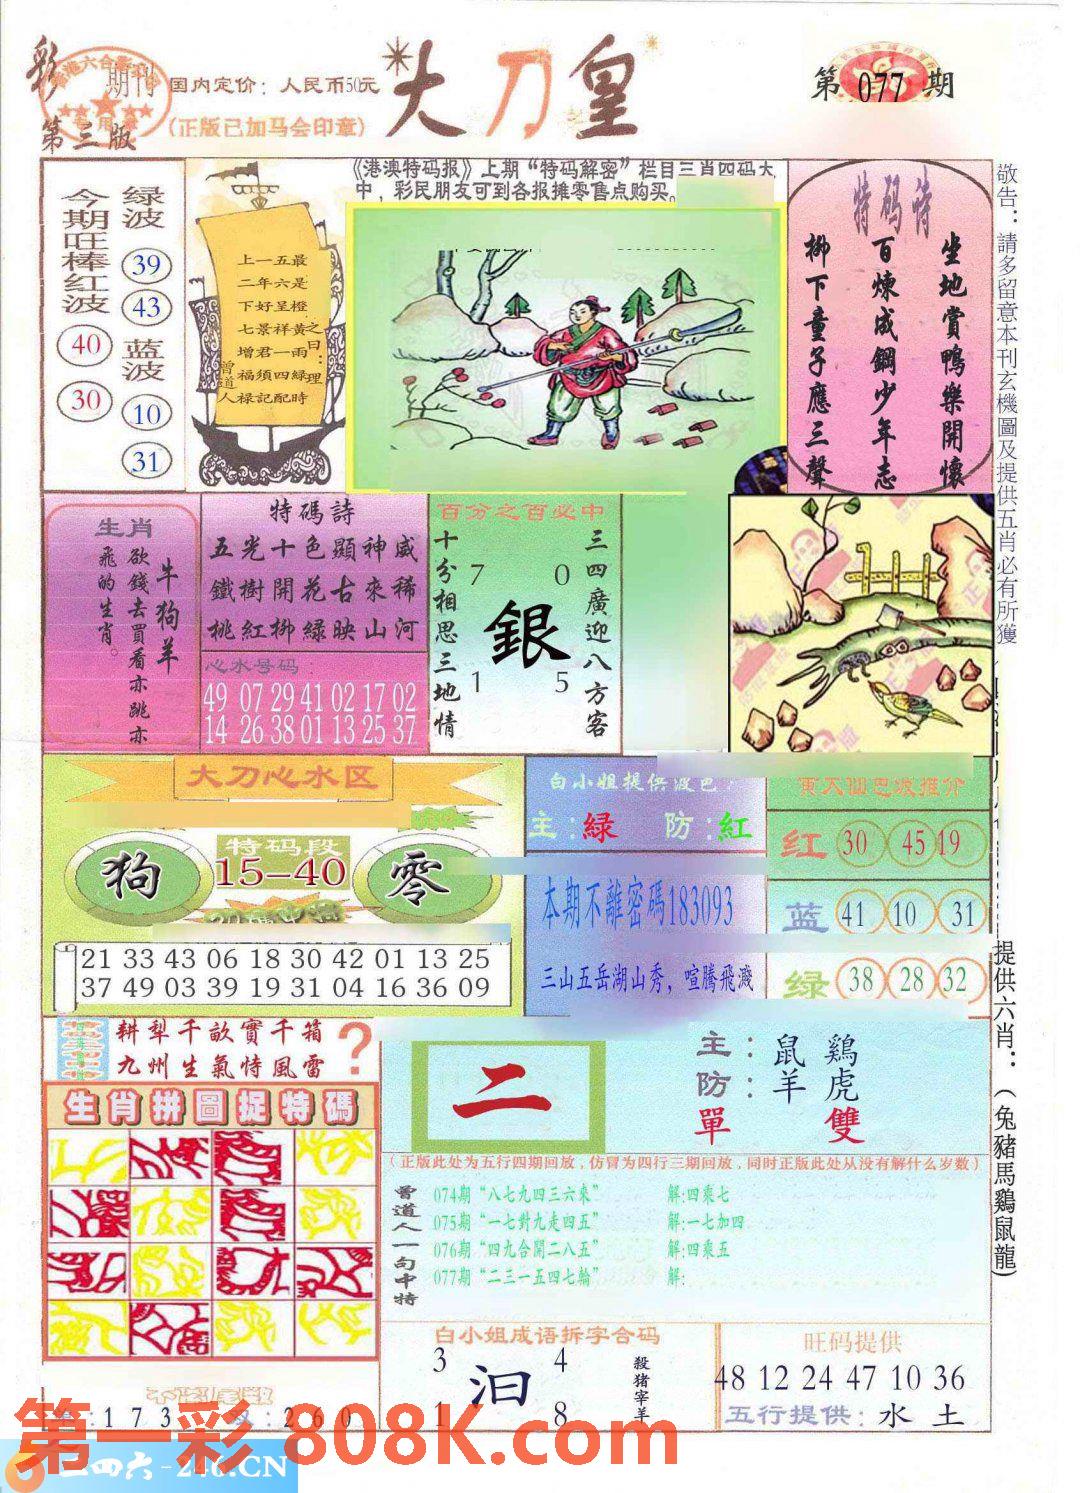 彩 期刊
国内定价：人民币50元
第三版
(正版已加马会印章)
大刀皇
第 077 期
《港澳特码报》上期“特码解密”栏目三肖四码大
中，彩民朋友可到各报摊零售点购买。
今期旺棒红波
40
30
绿波
39
43
蓝波
10
31
上一五最
二年六是
下好呈橙
七景祥黄之日：理
增君一雨
福須四緑
禄記配時
曾道人
特码诗
坐地賞鴨樂開懷
百煉成鋼少年志
柳下童子應三聲
敬告：請多留意本刊玄機圖及提供五肖必有所獲
生肖
牛狗羊
欲錢去買看亦跳亦
飛的生肖。
特碼詩
五光十色顯神威
鐵樹開花古來稀
桃紅柳綠映山河
心水号码
49 07 29 41 02 17 02
14 26 38 01 13 25 37
百分之百必中
三四廣迎八方客
十分相思三地情
7 0
銀
1 5
大刀心水区
特码段
狗 15-40 零
21 33 43 06 18 30 42 01 13 25
37 49 03 39 19 31 04 16 36 09
白小姐提供波色
主:绿 防:紅
本期不離密碼183093
三山五岳湖山秀，喧騰飛濺
红 30 45 19
蓝 41 10 31
绿 38 28 32
提供六肖：（兔豬馬鷄鼠龍）
耕犁千畝實千箱
九州生氣恃風雷
?
生肖拼圖捉特碼
二
主：鼠 鷄
防：羊 虎
單 雙
(正版此处为五行四期回放，仿冒为四行三期回放，同时正版此处从没有解什么岁数)
曾道人一句中特
074期“八七九四三六來” 解:四乘七
075期“一七對九走四五” 解:一七加四
076期“四九合開二八五” 解:四乘五
077期“二三一五四七輪” 解:
白小姐成语拆字合码
3 4
汩
1 8
殺猪宰羊
旺码提供
48 12 24 47 10 36
五行提供：水 土
:173 :260
第一彩 808K.com
二四六-246.CN